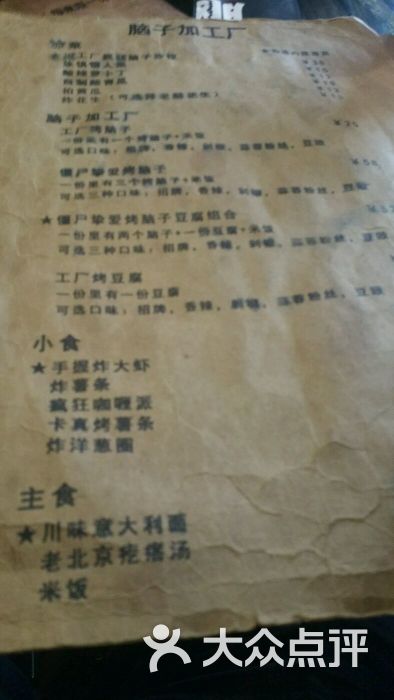 脑子加工厂
凉菜
拍黄瓜
炸花生（可选择老醋花生）
脑子加工厂
工厂烤脑子 ¥25
一份里有一个烤脑子+米饭
可选口味：招牌，香辣，剁椒，蒜蓉粉丝，豆豉
僵尸挚爱烤脑子 ¥58
一份里有三个烤脑子+米饭
可选三种口味：招牌，香辣，剁椒，蒜蓉粉丝，豆豉
★僵尸挚爱烤脑子豆腐组合
一份里有两个脑子+一份豆腐+米饭
可选三种口味：招牌，香辣，剁椒，蒜蓉粉丝，豆豉
工厂烤豆腐
一份里有一份豆腐
可选口味：招牌，香辣，剁椒，蒜蓉粉丝，豆豉
小食
★手握炸大虾
炸薯条
疯狂咖喱派
卡真烤薯条
炸洋葱圈
主食
★川味意大利面
老北京疙瘩汤
米饭
大众点评